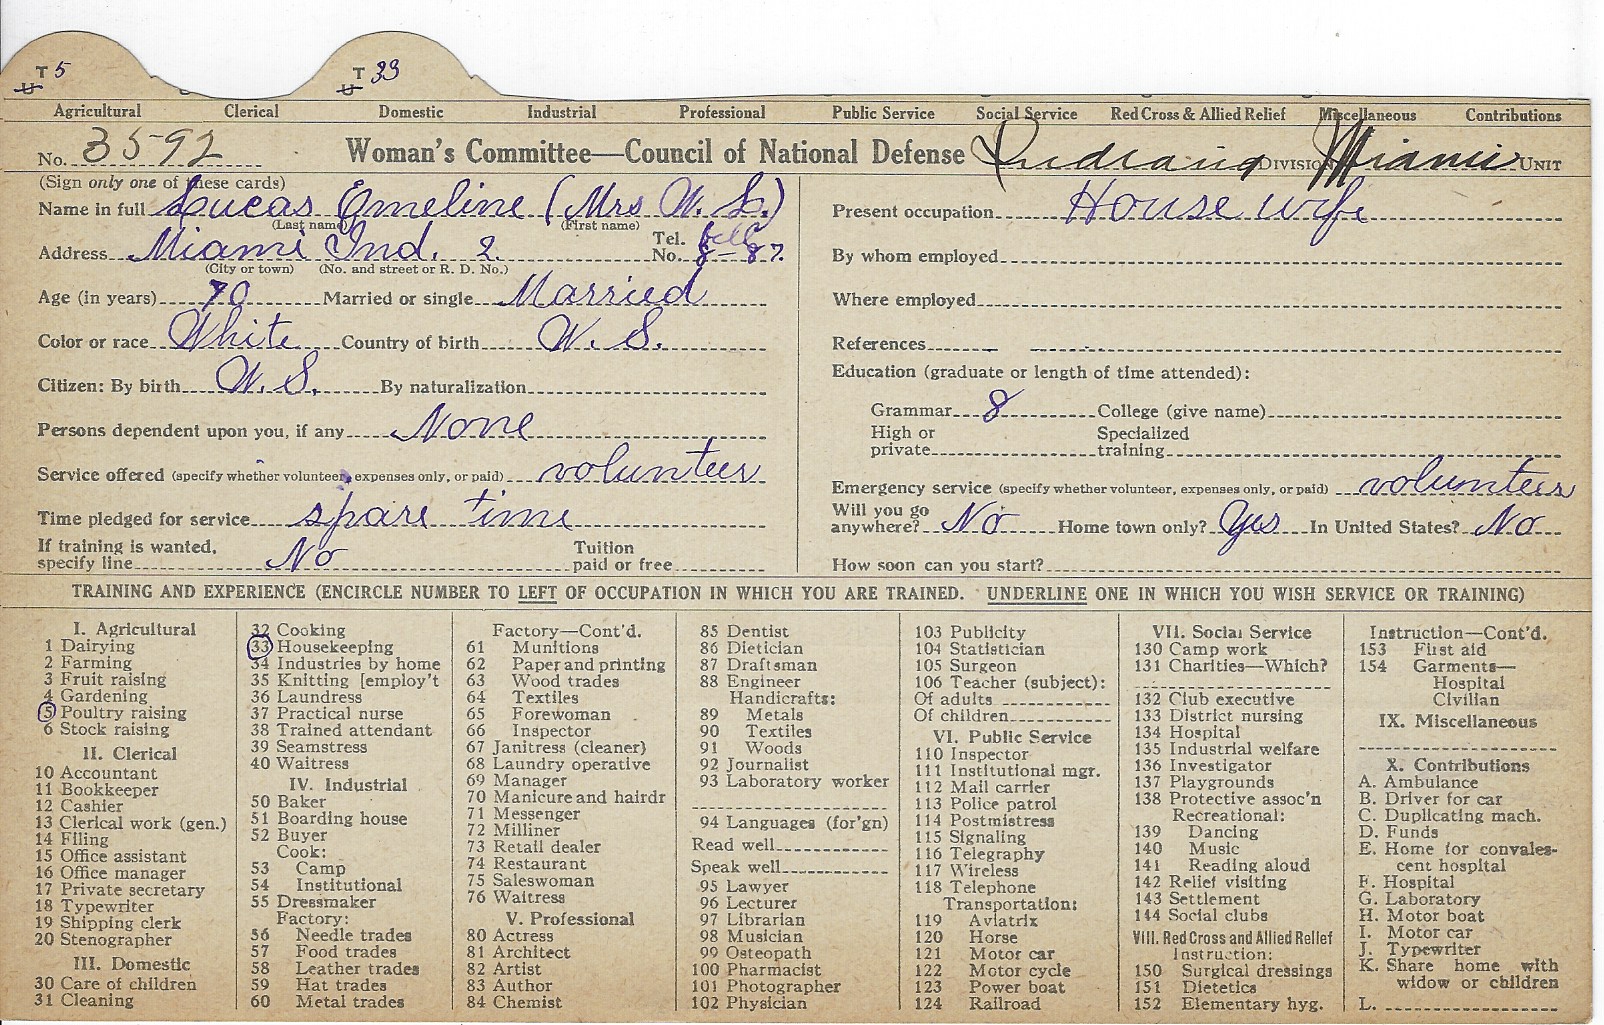 T 5 T 33
U U
Agricultural Clerical Domestic Industrial Professional Public Service Social Service Red Cross & Allied Relief Miscellaneous Contributions
No. 3592 Woman's Committee—Council of National Defense Indiana DIVISION Miami UNIT
(Sign only one of these cards)
Name in full Lucas Emeline (Mrs W. S.)
(Last name) (First name)
Address Miami Ind. 2. Tel. No. bell 8-87.
(City or town) (No. and street or R. D. No.)
Age (in years) 70 Married or single Married
Color or race White Country of birth U. S.
Citizen: By birth U. S. By naturalization
Persons dependent upon you, if any None
Service offered (specify whether volunteer, expenses only, or paid) volunteer
Time pledged for service spare time
If training is wanted, specify line No Tuition paid or free
Present occupation House wife
By whom employed
Where employed
References
Education (graduate or length of time attended):
Grammar 8 College (give name)
High or private Specialized training
Emergency service (specify whether volunteer, expenses only, or paid) volunteer
Will you go anywhere? No Home town only? Yes In United States? No
How soon can you start?
TRAINING AND EXPERIENCE (ENCIRCLE NUMBER TO LEFT OF OCCUPATION IN WHICH YOU ARE TRAINED. UNDERLINE ONE IN WHICH YOU WISH SERVICE OR TRAINING)
I. Agricultural
1 Dairying
2 Farming
3 Fruit raising
4 Gardening
5 Poultry raising
6 Stock raising
II. Clerical
10 Accountant
11 Bookkeeper
12 Cashier
13 Clerical work (gen.)
14 Filing
15 Office assistant
16 Office manager
17 Private secretary
18 Typewriter
19 Shipping clerk
20 Stenographer
III. Domestic
30 Care of children
31 Cleaning
32 Cooking
33 Housekeeping
34 Industries by home
35 Knitting [employ't
36 Laundress
37 Practical nurse
38 Trained attendant
39 Seamstress
40 Waitress
IV. Industrial
50 Baker
51 Boarding house
52 Buyer
Cook:
53 Camp
54 Institutional
55 Dressmaker
Factory:
56 Needle trades
57 Food trades
58 Leather trades
59 Hat trades
60 Metal trades
Factory—Cont'd.
61 Munitions
62 Paper and printing
63 Wood trades
64 Textiles
65 Forewoman
66 Inspector
67 Janitress (cleaner)
68 Laundry operative
69 Manager
70 Manicure and hairdr
71 Messenger
72 Milliner
73 Retail dealer
74 Restaurant
75 Saleswoman
76 Waitress
V. Professional
80 Actress
81 Architect
82 Artist
83 Author
84 Chemist
85 Dentist
86 Dietician
87 Draftsman
88 Engineer
Handicrafts:
89 Metals
90 Textiles
91 Woods
92 Journalist
93 Laboratory worker
94 Languages (for'gn)
Read well
Speak well
95 Lawyer
96 Lecturer
97 Librarian
98 Musician
99 Osteopath
100 Pharmacist
101 Photographer
102 Physician
103 Publicity
104 Statistician
105 Surgeon
106 Teacher (subject):
Of adults
Of children
VI. Public Service
110 Inspector
111 Institutional mgr.
112 Mail carrier
113 Police patrol
114 Postmistress
115 Signaling
116 Telegraphy
117 Wireless
118 Telephone
Transportation:
119 Aviatrix
120 Horse
121 Motor car
122 Motor cycle
123 Power boat
124 Railroad
VII. Social Service
130 Camp work
131 Charities—Which?
132 Club executive
133 District nursing
134 Hospital
135 Industrial welfare
136 Investigator
137 Playgrounds
138 Protective assoc'n
Recreational:
139 Dancing
140 Music
141 Reading aloud
142 Relief visiting
143 Settlement
144 Social clubs
VIII. Red Cross and Allied Relief
Instruction:
150 Surgical dressings
151 Dietetics
152 Elementary hyg.
Instruction—Cont'd.
153 First aid
154 Garments—
Hospital
Civilian
IX. Miscellaneous
X. Contributions
A. Ambulance
B. Driver for car
C. Duplicating mach.
D. Funds
E. Home for convales-
cent hospital
F. Hospital
G. Laboratory
H. Motor boat
I. Motor car
J. Typewriter
K. Share home with
widow or children
L.